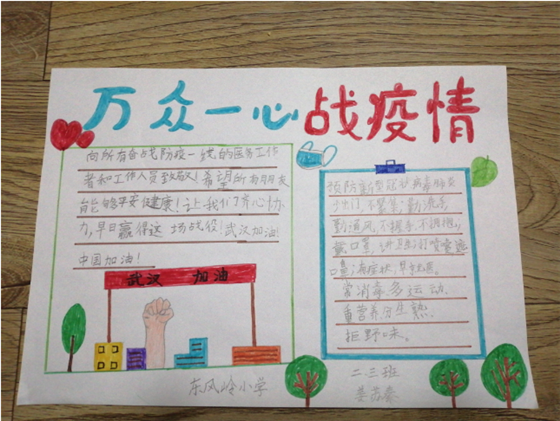 万众一心战疫情
向所有奋战防疫一线的医务工作
者和工作人员致敬!希望所有朋友
能够平安健康!让我们齐心协
力,早日赢得这场战役!武汉加油!
中国加油!
武汉 加油
预防新型冠状病毒肺炎
少出门,不聚集,勤洗手,
勤通风,不握手,不拥抱,
戴口罩,讲卫生打喷嚏
有症状,早
常消毒,多运动.
重营养,分生熟.
拒野味。
东风岭小学
二三班